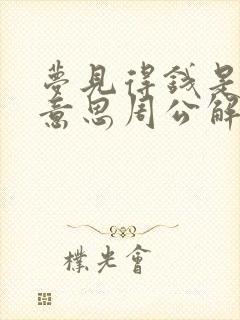 夢見得錢是
意思周公解
樸光會